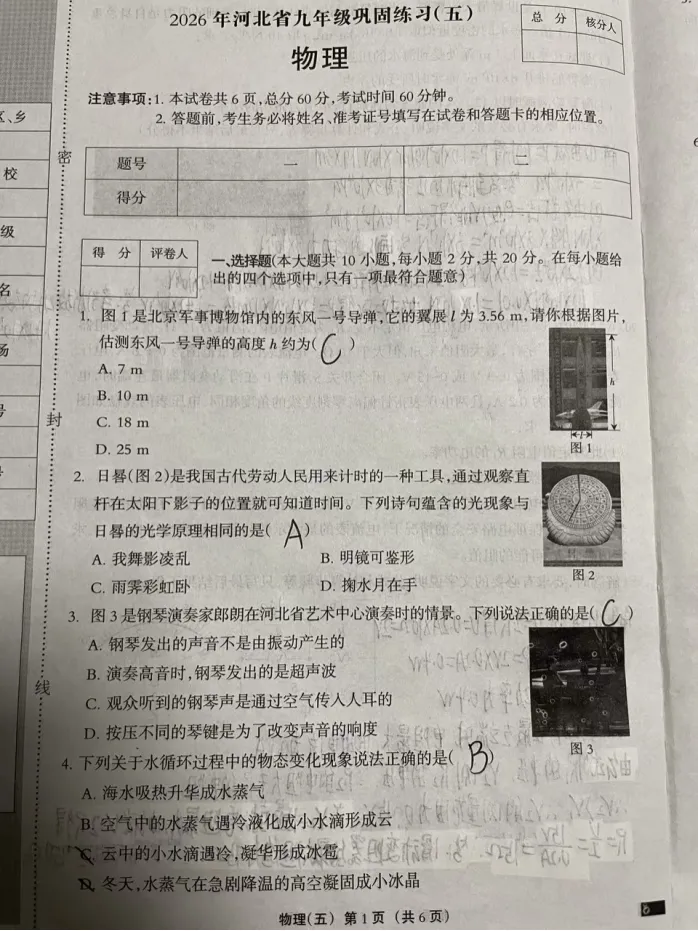 2026年河北省九年级巩固练习(五)
总 分 核分人
物理
注意事项:1. 本试卷共6页,总分60分,考试时间60分钟。
2. 答题前,考生务必将姓名、准考证号填写在试卷和答题卡的相应位置。
区、乡
校
级
名
场
号
密
封
线
题号 一 二
得分
得 分 评卷人
一、选择题(本大题共10小题,每小题2分,共20分。在每小题给
出的四个选项中,只有一项最符合题意)
1. 图1是北京军事博物馆内的东风一号导弹,它的翼展l为3.56 m,请你根据图片,
估测东风一号导弹的高度h约为( C )
A. 7 m
B. 10 m
C. 18 m
D. 25 m
h
l
图1
2. 日晷(图2)是我国古代劳动人民用来计时的一种工具,通过观察直
杆在太阳下影子的位置就可知道时间。下列诗句蕴含的光现象与
日晷的光学原理相同的是( A )
A. 我舞影凌乱 B. 明镜可鉴形
C. 雨霁彩虹卧 D. 掬水月在手
图2
3. 图3是钢琴演奏家郎朗在河北省艺术中心演奏时的情景。下列说法正确的是( C )
A. 钢琴发出的声音不是由振动产生的
B. 演奏高音时,钢琴发出的是超声波
C. 观众听到的钢琴声是通过空气传入人耳的
D. 按压不同的琴键是为了改变声音的响度
图3
4. 下列关于水循环过程中的物态变化现象说法正确的是( B )
A. 海水吸热升华成水蒸气
B. 空气中的水蒸气遇冷液化成小水滴形成云
C. 云中的小水滴遇冷,凝华形成冰雹
D. 冬天,水蒸气在急剧降温的高空凝固成小冰晶
物理(五) 第1页 (共6页)